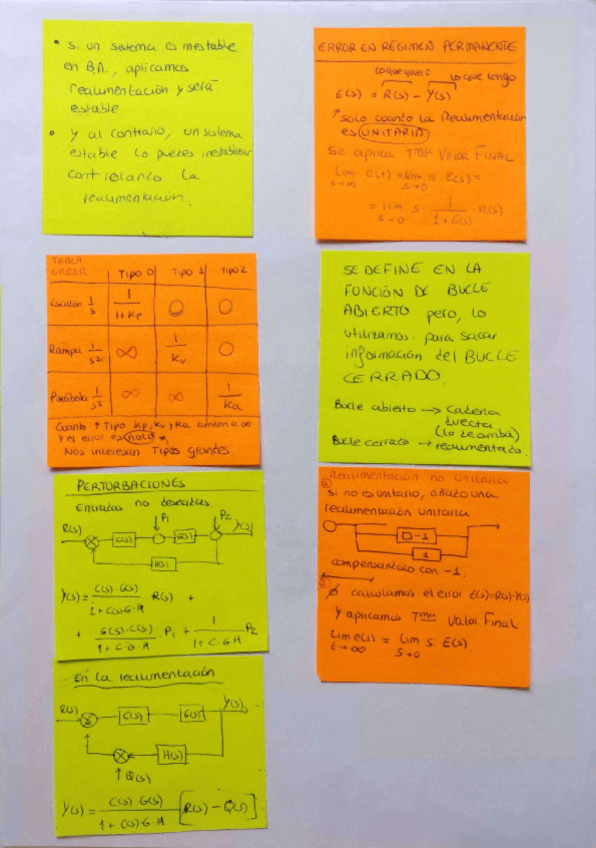 • Si un sistema es inestable
en B.A., aplicamos
realimentación y será
estable
• Y al contrario, un sistema
estable lo puedes inestabilizar
controlando la
realimentación.
ERROR EN RÉGIMEN PERMANENTE
lo que quiero lo que tengo
E(s) = R(s) - Y(s)
↑ solo cuando la Realimentación
es UNITARIA
Se aplica Tma VALOR FINAL
lim E(t) = lim s · E(s) =
s→0
= lim s · 1/(1+G(s)) · R(s)
s→0
TABLA
ERROR Tipo 0 Tipo 1 Tipo 2
Escalón 1/s 1/(1+Kp) 0 0
Rampa 1/s² ∞ 1/Kv 0
Parábola 1/s³ ∞ ∞ 1/Ka
Cuanto ↑ Tipo Kp, Kv y Ka tienden a ∞
y el error es nulo
Nos interesan Tipos grandes
SE DEFINE EN LA
FUNCIÓN DE BUCLE
ABIERTO pero, lo
utilizamos para sacar
información del BUCLE
CERRADO.
Bucle abierto → Cadena
directa
(lo de arriba)
Bucle cerrado → realimentado.
PERTURBACIONES
Entradas no deseadas
R(s) C(s) P1 G(s) P2 Y(s)
H(s)
Y(s) = C(s)·G(s)/(1+C(s)·G·H) R(s) +
+ G(s)·C(s)/(1+C·G·H) · P1 + 1/(1+C·G·H) P2
Realimentación no unitaria
①
si no es unitario, añado una
realimentación unitaria
□-1
1
compensandolo con -1.
②
calculamos el error E(s)=R(s)-Y(s)
Y aplicamos Tma Valor Final
lim e(t) = lim s. E(s)
t→∞ s→0
En la realimentación
R(s) C(s) G(s) Y(s)
H(s)
↑ Q(s)
Y(s) = C(s)·G(s)/(1+C(s)·G·H) [R(s) - Q(s)]